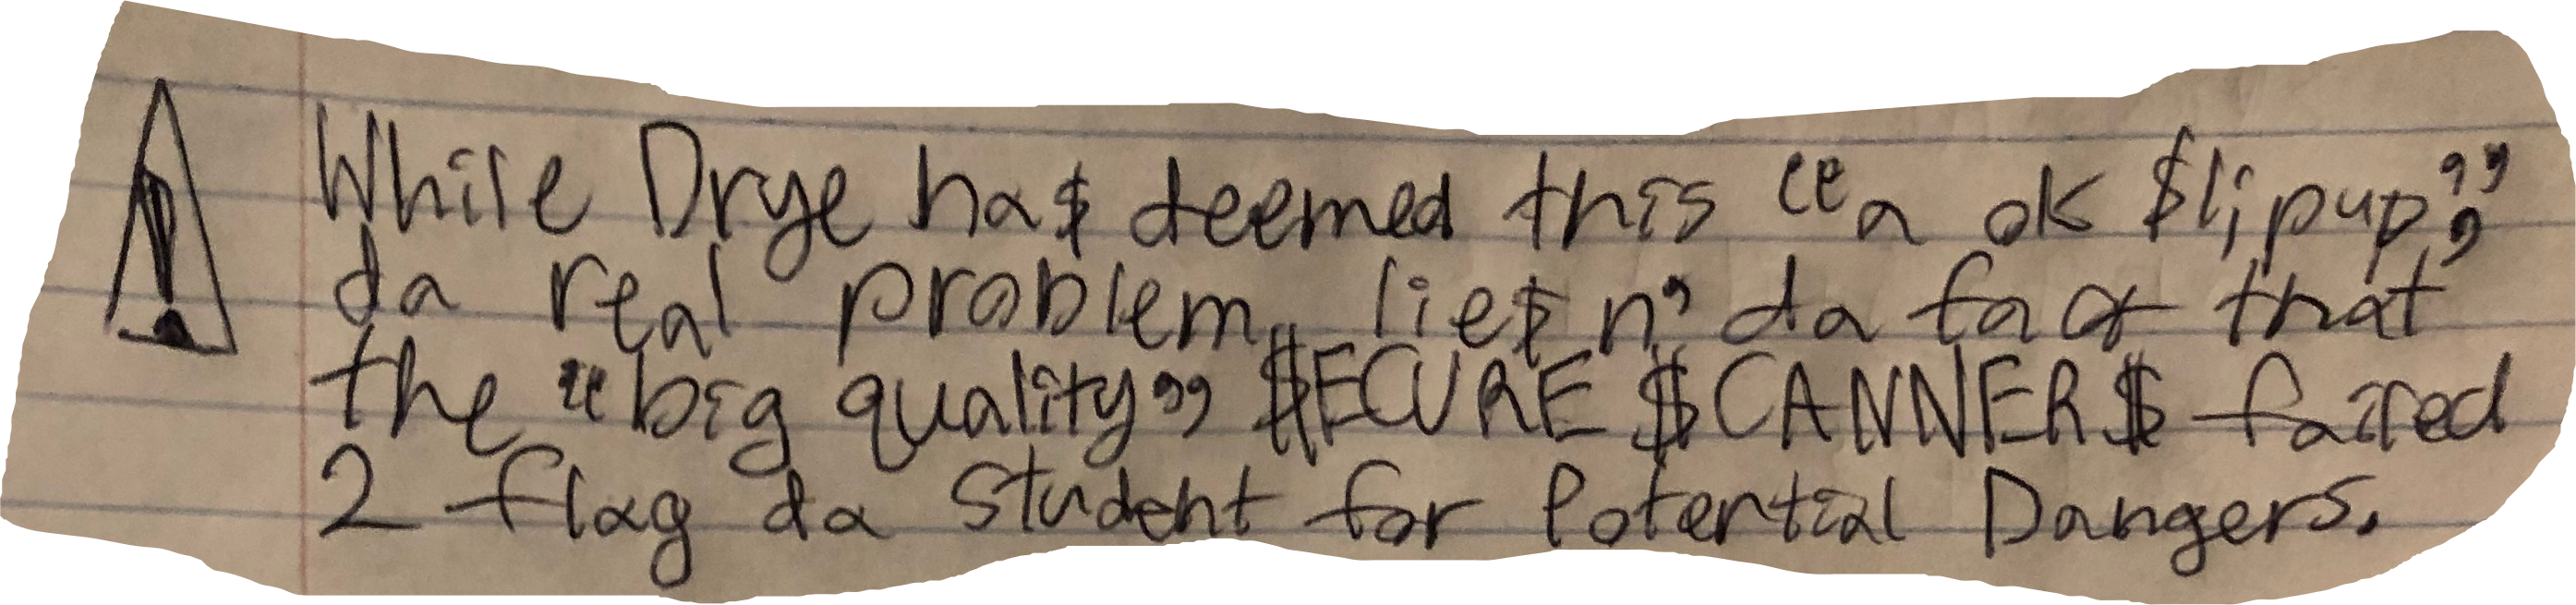 While Drye ha$ deemed this “a ok $lipup”,
da real problem lie$ n’ da fact that
the “big quality” $ECURE $CANNER$ failed
2 flag da student for Potential Dangers.